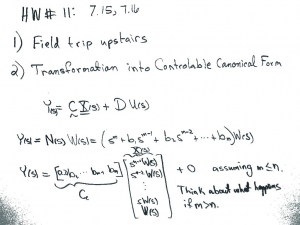 HW# 11: 7.15, 7.16
1) Field trip upstairs
2) Transformation into Controlable Canonical Form
Y(s) = C X(s) + D U(s)
Y(s) = N(s) W(s) = (s^m + b₁s^m-1 + b₂s^m-2 + ... + bm) W(s)
X(s)
s^n-1 W(s)
s^n-2 W(s)
⋮
sW(s)
W(s)
+ 0 assuming m≤n.
Think about what happens
if m>n.
Cc